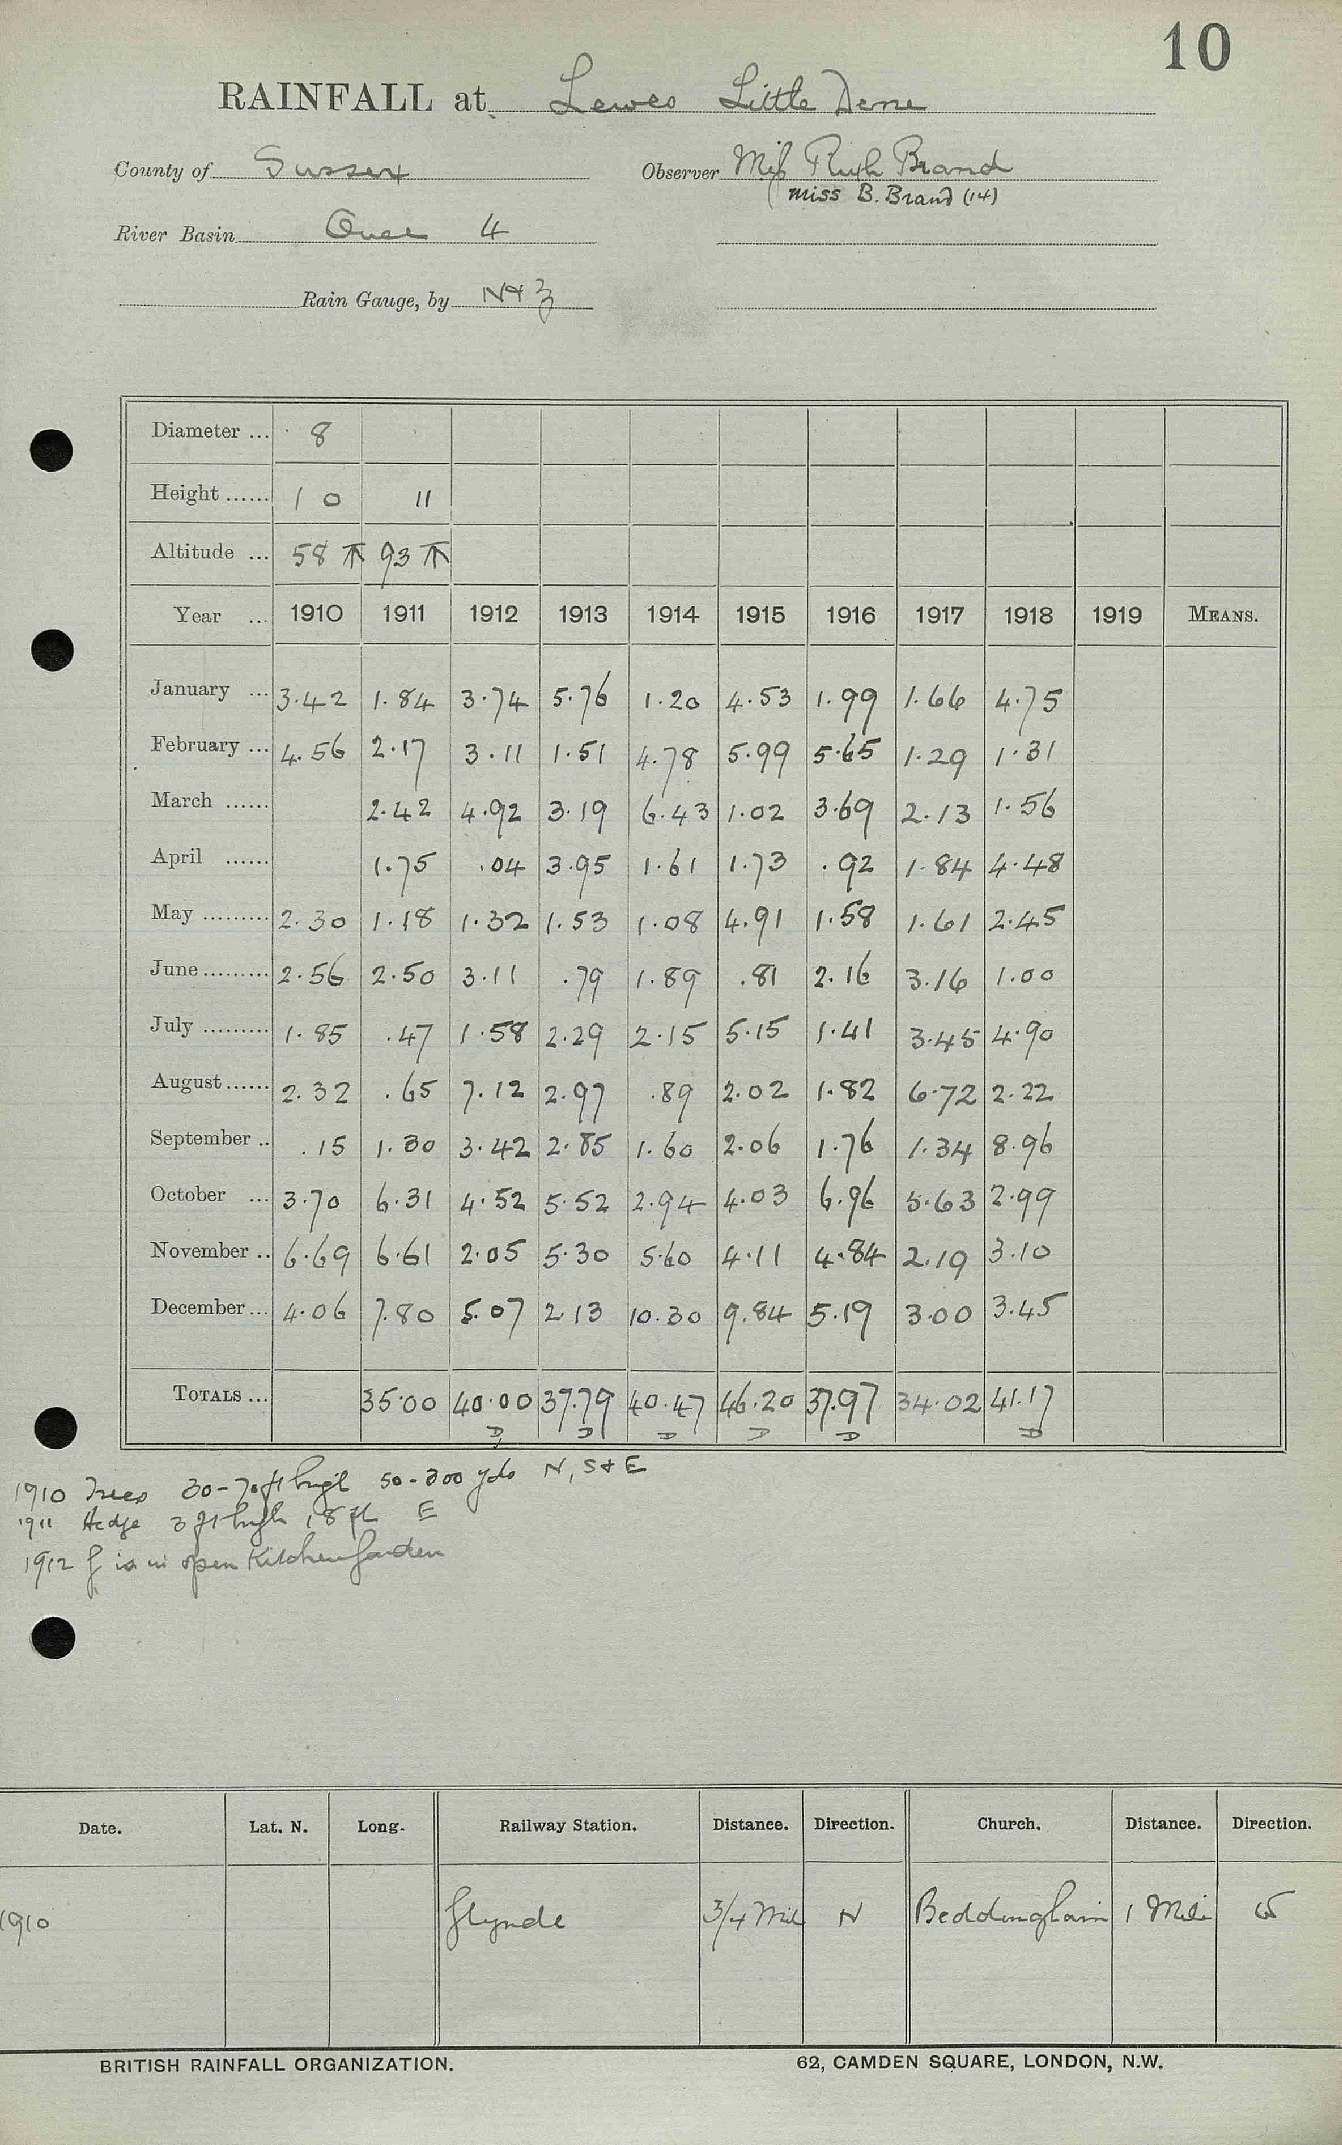 10
RAINFALL at Lewes Little Dene
County of Sussex Observer Miss Ruth Brand
Miss B. Brand (14)
River Basin Ouse 4
Rain Gauge, by N & Z
Diameter ... 8
Height ...... 1 0 11
Altitude ... 58 93
Year ... 1910 1911 1912 1913 1914 1915 1916 1917 1918 1919 MEANS.
January ... 3.42 1.84 3.74 5.76 1.20 4.53 1.99 1.66 4.75
February ... 4.56 2.17 3.11 1.51 4.78 5.99 5.65 1.29 1.31
March ...... 2.42 4.92 3.19 6.43 1.02 3.69 2.13 1.56
April ...... 1.75 .04 3.95 1.61 1.73 .92 1.84 4.48
May ......... 2.30 1.18 1.32 1.53 1.08 4.91 1.58 1.61 2.45
June ......... 2.56 2.50 3.11 .79 1.89 .81 2.16 3.16 1.00
July ......... 1.85 .47 1.58 2.29 2.15 5.15 1.41 3.45 4.90
August ...... 2.32 .65 7.12 2.97 .89 2.02 1.82 6.72 2.22
September .. .15 1.30 3.42 2.85 1.60 2.06 1.76 1.34 8.96
October ... 3.70 6.31 4.52 5.52 2.94 4.03 6.96 5.63 2.99
November .. 6.69 6.61 2.05 5.30 5.60 4.11 4.84 2.19 3.10
December ... 4.06 7.80 5.07 2 13 10.30 9.84 5.19 3.00 3.45
TOTALS ... 35.00 40.00 37.79 40.47 46.20 37.97 34.02 41.17
D D D D D D
1910 Trees 30-70 ft high 50-200 yds N, S & E
1911 Hedge 3 ft high 18 ft E
1912 G is in open Kitchen Garden
Date. Lat. N. Long. Railway Station. Distance. Direction. Church. Distance. Direction.
1910 Glynde 3/4 Mile N Beddingham 1 Mile W
BRITISH RAINFALL ORGANIZATION. 62, CAMDEN SQUARE, LONDON, N.W.